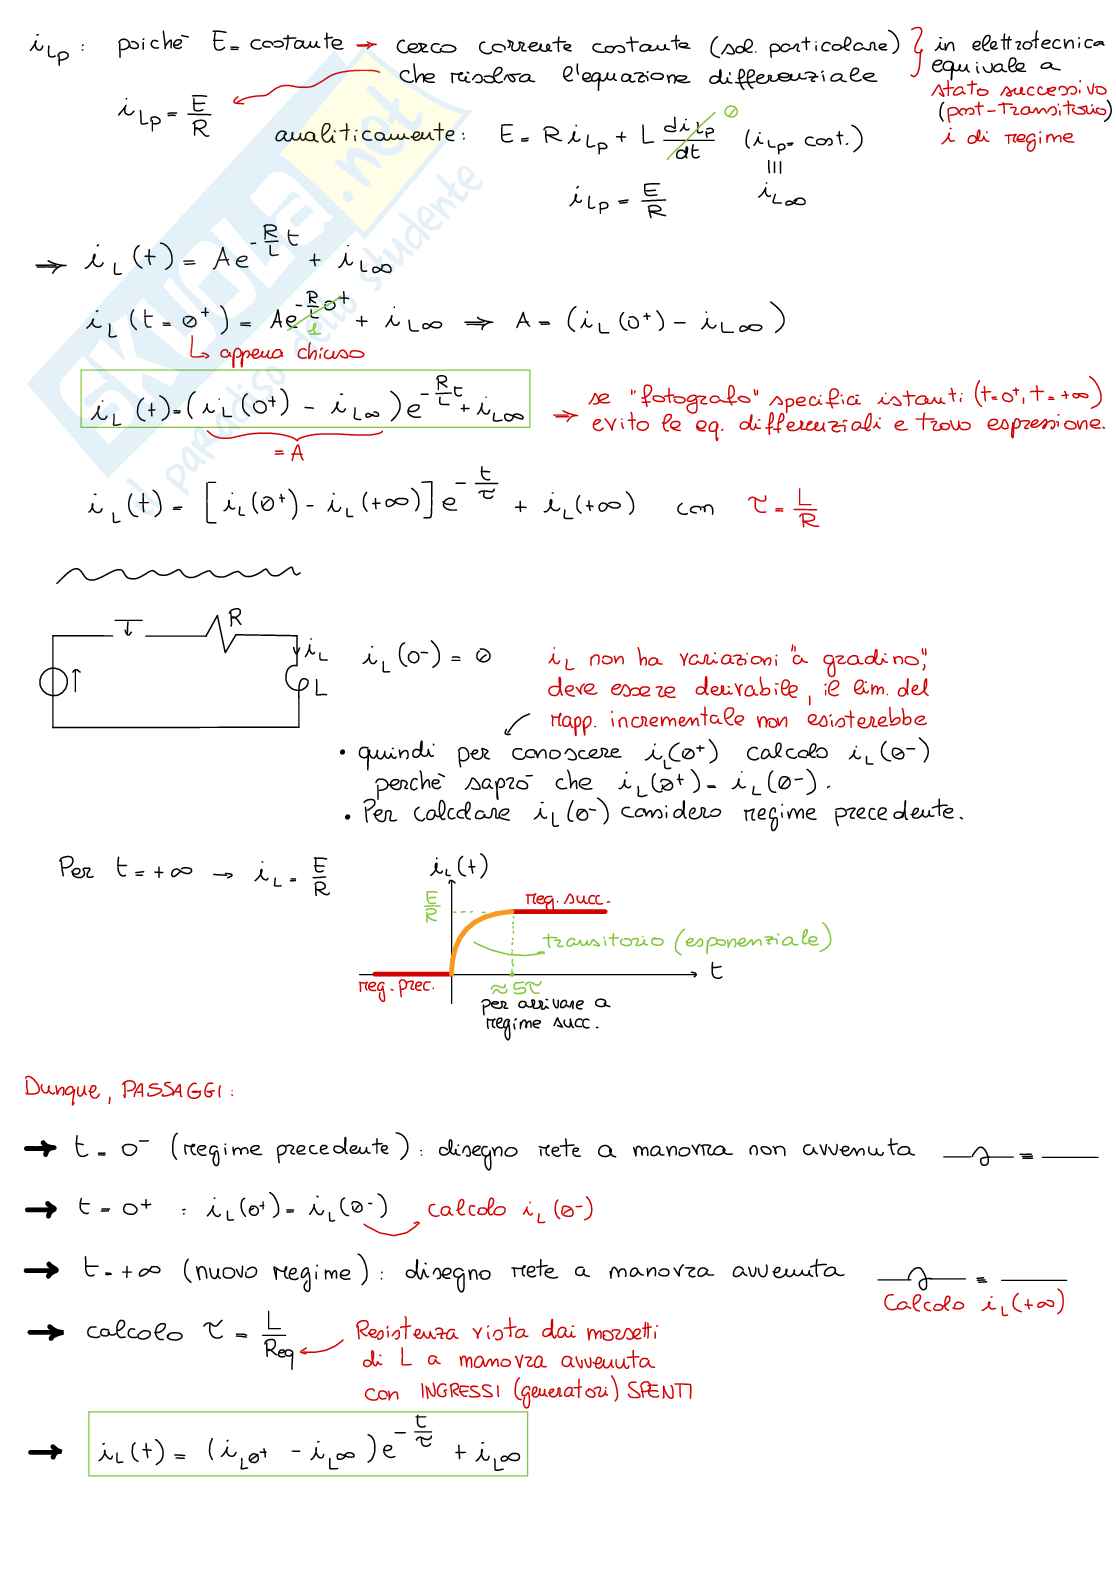 iLp : poichè E = costante → cerco corrente costante (sol. particolare) } in elettrotecnica
che risolva l'equazione differenziale equivale a
stato successivo
(post-transitorio)
i di regime
iLp = E/R
analiticamente: E = R iLp + L diLp/dt 0 (iLp = cost.)
iLp = E/R iL∞
⇒ iL(t) = A e^(-R/L t) + iL∞
iL(t = 0+) = A e^(-R/L 0+) 1 + iL∞ ⇒ A = (iL(0+) - iL∞)
↳ appena chiuso
iL(t) = (iL(0+) - iL∞) e^(-R/L t) + iL∞
= A
⇒ se "fotografo" specifici istanti (t=0+, t=+∞)
evito le eq. differenziali e trovo espressione.
iL(t) = [iL(0+) - iL(+∞)] e^(-t/τ) + iL(+∞) con τ = L/R
R
iL
L
iL(0-) = 0
iL non ha variazioni "a gradino",
deve essere derivabile, il lim. del
rapp. incrementale non esisterebbe
• quindi per conoscere iL(0+) calcolo iL(0-)
perchè saprò che iL(0+) = iL(0-).
• Per calcolare iL(0-) considero regime precedente.
Per t = +∞ → iL = E/R
iL(t)
E/R
reg. succ.
transitorio (esponenziale)
t
reg. prec.
≈ 5τ
per arrivare a
regime succ.
Dunque, PASSAGGI:
→ t = 0- (regime precedente): disegno rete a manovra non avvenuta
→ t = 0+ : iL(0+) = iL(0-) calcolo iL(0-)
→ t = +∞ (nuovo regime): disegno rete a manovra avvenuta
Calcolo iL(+∞)
→ calcolo τ = L/Req
Resistenza vista dai morsetti
di L a manovra avvenuta
con INGRESSI (generatori) SPENTI
→ iL(t) = (iL0+ - iL∞) e^(-t/τ) + iL∞
SKUOLA.net
il paradiso dello studente